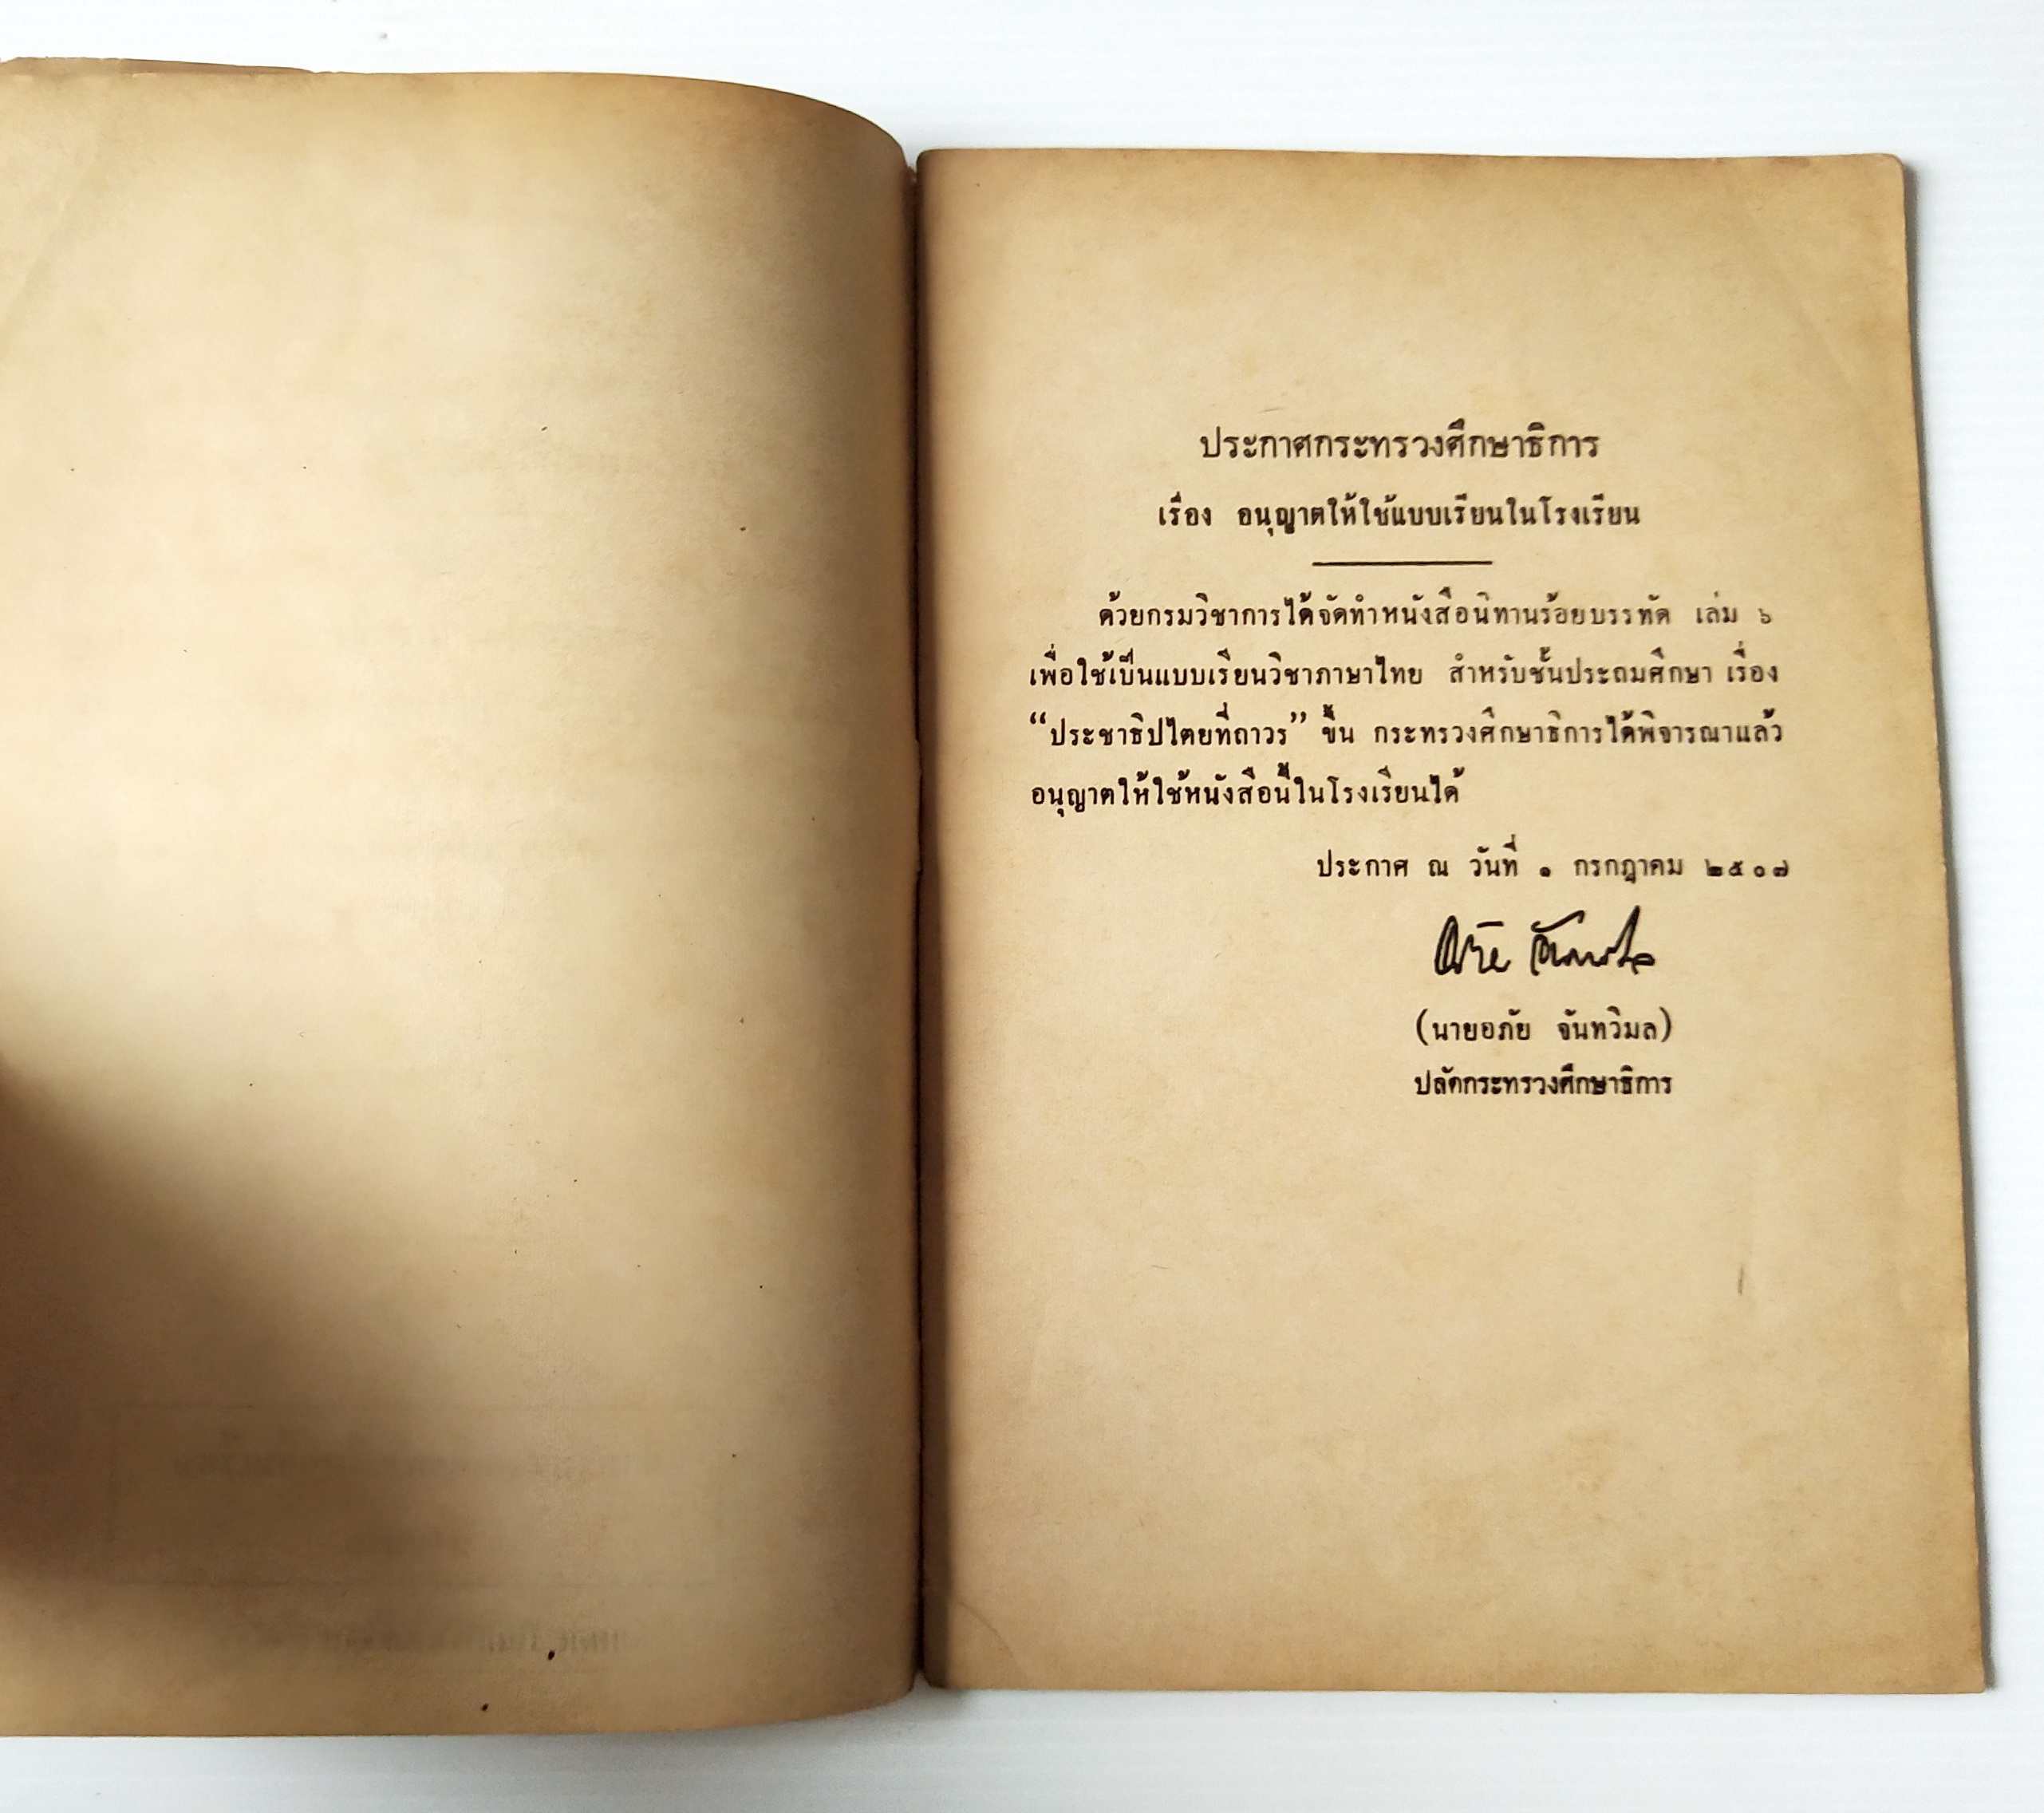 ประกาศกระทรวงศึกษาธิการ
เรื่อง อนุญาตให้ใช้แบบเรียนในโรงเรียน
ด้วยกรมวิชาการได้จัดทำหนังสือนิทานร้อยบรรทัด เล่ม ๖
เพื่อใช้เป็นแบบเรียนวิชาภาษาไทย สำหรับชั้นประถมศึกษา เรื่อง
“ประชาธิปไตยที่ถาวร” ขึ้น กระทรวงศึกษาธิการได้พิจารณาแล้ว
อนุญาตให้ใช้หนังสือนี้ในโรงเรียนได้
ประกาศ ณ วันที่ ๑ กรกฎาคม ๒๕๐๗
(นายอภัย จันทวิมล)
ปลัดกระทรวงศึกษาธิการ